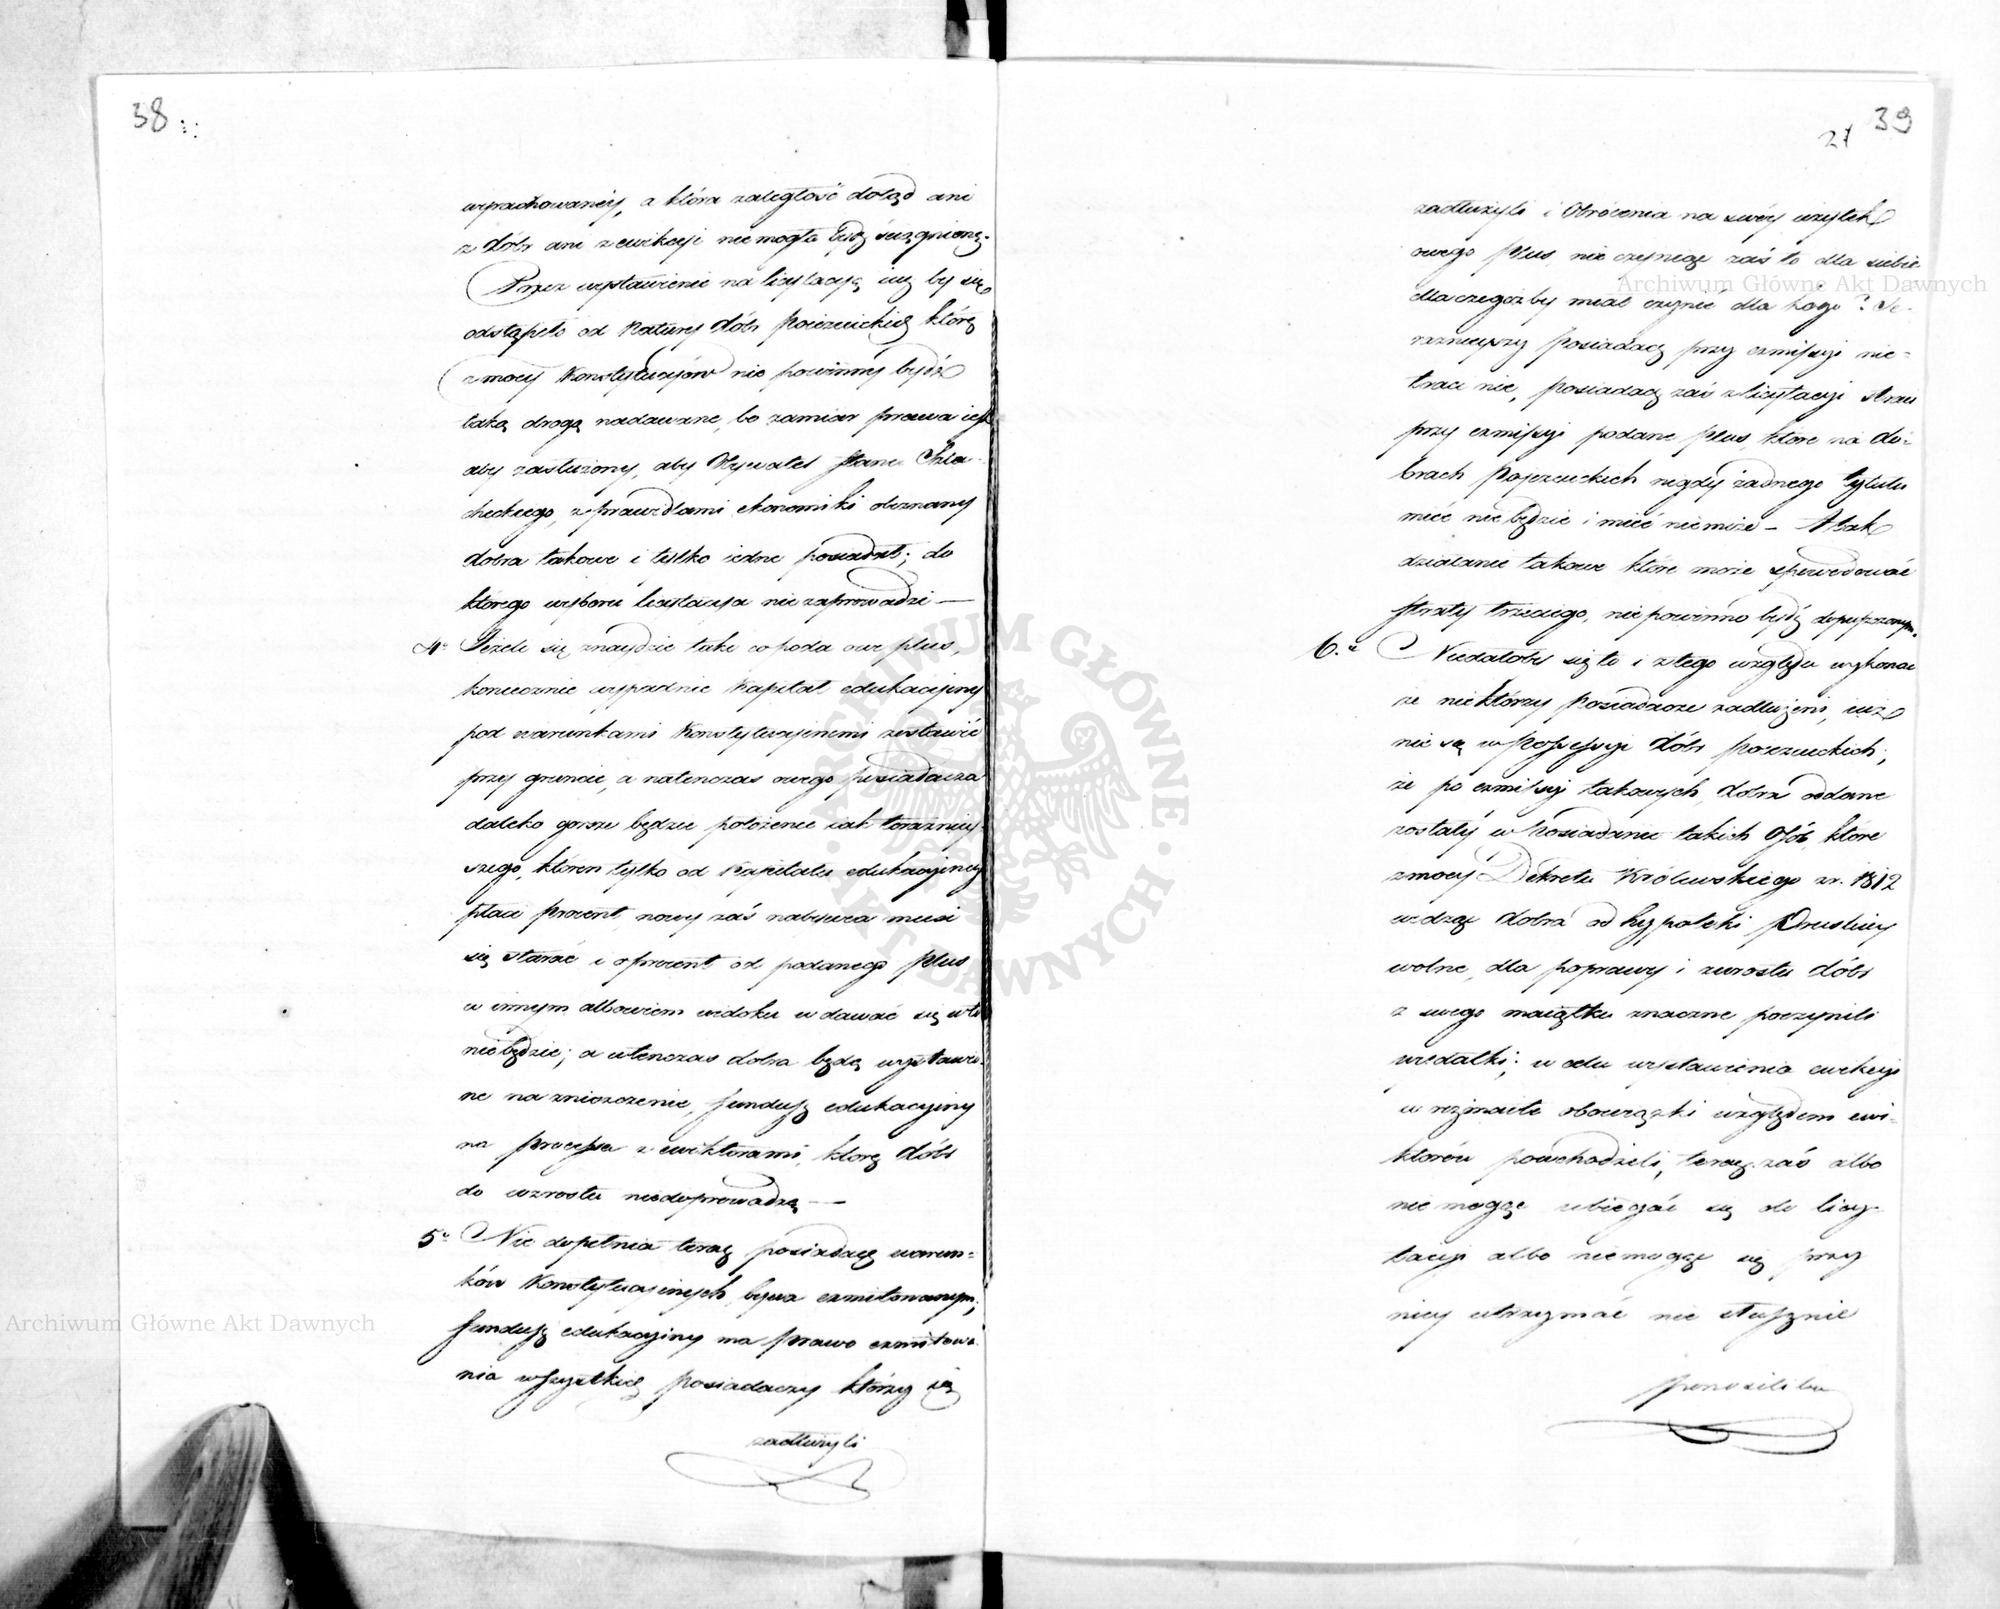 38
wyrachowaney, a która zaległość dotąd ani
z dóbr ani z ewikcyi niemogła bydź ściągnioną.
Przez wystawienie na licytacyą iuż by się
odstąpiło od natury dóbr poiezuickich które
z mocy Konstytucyiów nie powinny bydź
taką drogą nadawane, bo zamiar prawa iest
aby zasłużony, aby Obywatel stanu Szla-
checkiego, z prawidłami ekonomiki obeznany
dobra takowe i tylko iedne posiadał; do
którego wyboru licytacya nie zaprowadzi —
4o Jeżeli się znaydzie taki co poda owe plus,
koniecznie wypadnie Kapitał edukacyiny
pod warunkami Konstytucyinemi zostawić
przy gruncie, a natenczas owego posiadacza
daleko gorsze będzie położenie iak teraźniey-
szego, któren tylko od Kapitału edukacyinego
płaci procent, nowy zaś nabywca musi
się starać i o procent od podanego plus
w innym albowiem widoku wdawać się w to
nie będzie; a wtenczas dobra będą wystawio-
ne na zniszczenie, fundusz edukacyiny
na processa z ewiktorami, które dóbr
do wzrostu niedoprowadzą —
5o Nie dopełnia teraz posiadacz warun-
ków Konstytucyinych, bywa exmitowanym;
fundusz edukacyiny ma prawo exmitowa-
nia wszystkich posiadaczy którzy się
zadłużyli
39
21
zadłużyli i Obrócenia na swóy użytek
owego plus, nie czyniąc zaś to dla siebie
dla czegożby miał czynić dla kogo? Te-
raznieyszy posiadacz przy exmissyi nie-
traci nic, posiadacz zaś z licytacyi straci
przy exmissyi podane plus, które na do-
brach Pojezuickich nigdy żadnego tytułu
mieć nie będzie i mieć niemoże — A tak
działanie takowe które może spowodować
straty trzeciego, nie powinno bydź dopuszczonym.
6o Niedałoby się to i z tego względu wykonać
że niektórzy posiadacze zadłużeni, iuż
nie są w Possessyi dóbr poiezuickich;
że po exmissyi takowych, dobra oddane
zostały w Posiadanie takich Osób, które
z mocy Dekretu Królewskiego z r. 1812
widząc dobra od hypoteki Pruskiey
wolne, dla poprawy i wzrostu dóbr
z swego maiątku znaczne poczynili
wydatki; w celu wystawienia ewikcyi
w rozmaite obowiązki względem ewi-
ktorów powchodzili, teraz zaś albo
nie mogąc ubiegać się do licy-
tacyi albo niemogąc się przy
niey utrzymać nie słusznie
ponosiliby
ARCHIWUM GŁÓWNE AKT DAWNYCH
Archiwum Główne Akt Dawnych
Archiwum Główne Akt Dawnych